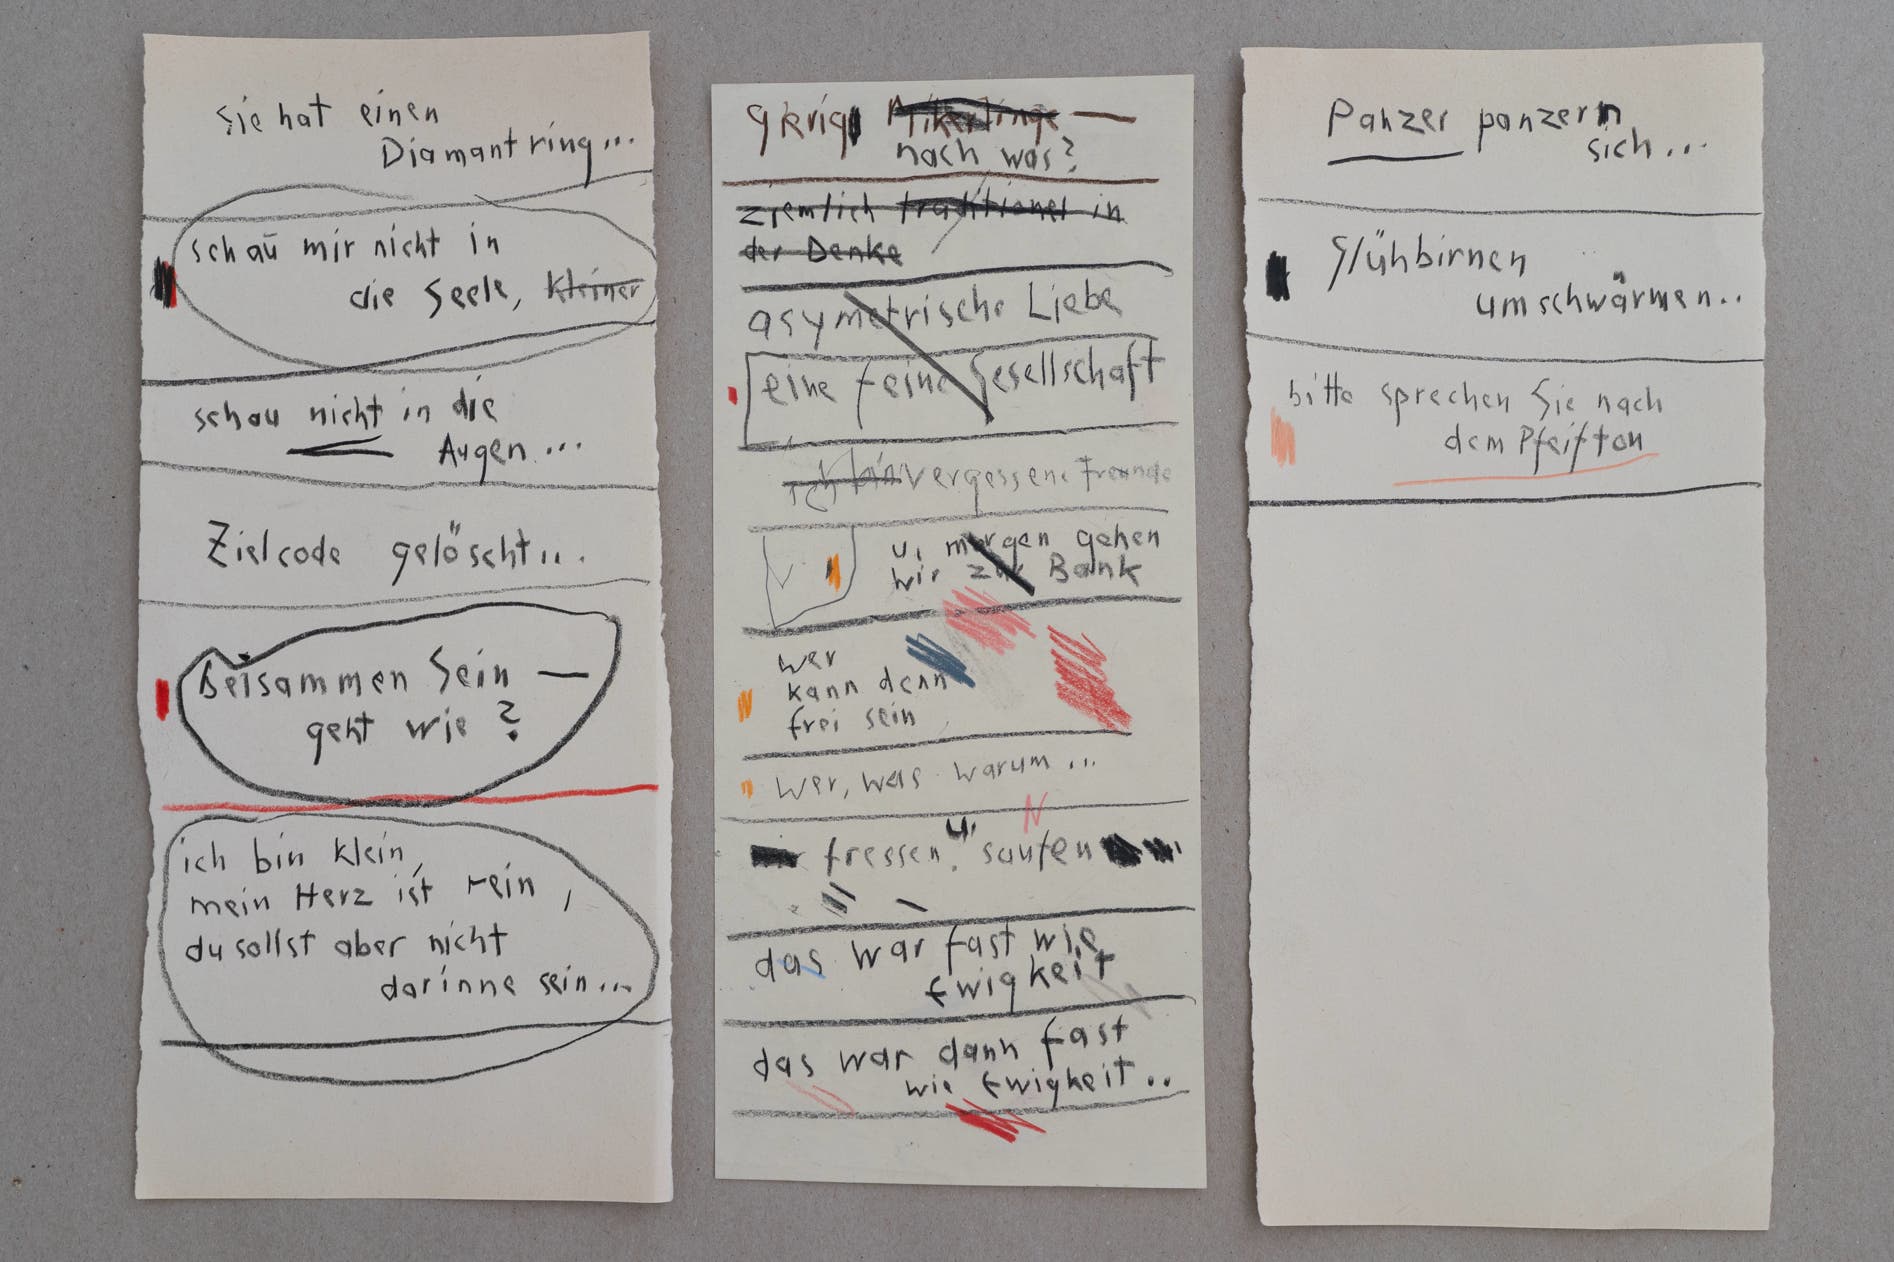 Sie hat einen
Diamantring...
schau mir nicht in
die Seele, kleiner
schau nicht in die
Augen...
Zielcode gelöscht...
Beisammen Sein —
geht wie?
ich bin klein,
mein Herz ist rein,
du sollst aber nicht
darinne sein...
nach was?
ziemlich traditionel in
der Denke
asymetrische Liebe
eine feine Gesellschaft
ich bin vergessene Freunde
u. morgen gehen
wir zur Bank
wer
kann denn
frei sein
wer, was warum...
fressen u. saufen
das war fast wie
Ewigkeit
das war dann fast
wie Ewigkeit..
Panzer panzern
sich...
Glühbirnen
umschwärmen..
bitte sprechen Sie nach
dem Pfeifton